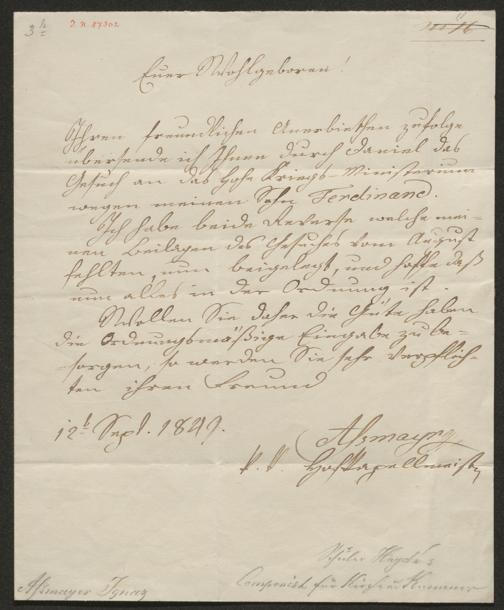 3
I. N. 87302
Euer Wohlgeboren!
Ihren freundlichen Anerbiethen zufolge
übersende ich Ihnen durch Daniel das
Gesuch an das hohe Kriegs-Ministerium
wegen meinen Sohn Ferdinand.
Ich habe beide Reverse welche mei-
nen Beilagen des Gesuches vom August
fehlten, nun beigelegt, und hoffe daß
nun alles in der Ordnung ist.
Wollen Sie daher die Güte haben
die Ordnungsmäßige Eingabe zu be-
sorgen, so werden Sie sehr verpflich-
ten ihren Freund
12t Sept. 1849.
Assmayr
k. k. Hofkapellmeister
Schüler Haydns
Assmayer Ignaz
Componist für Kirche u Kammer